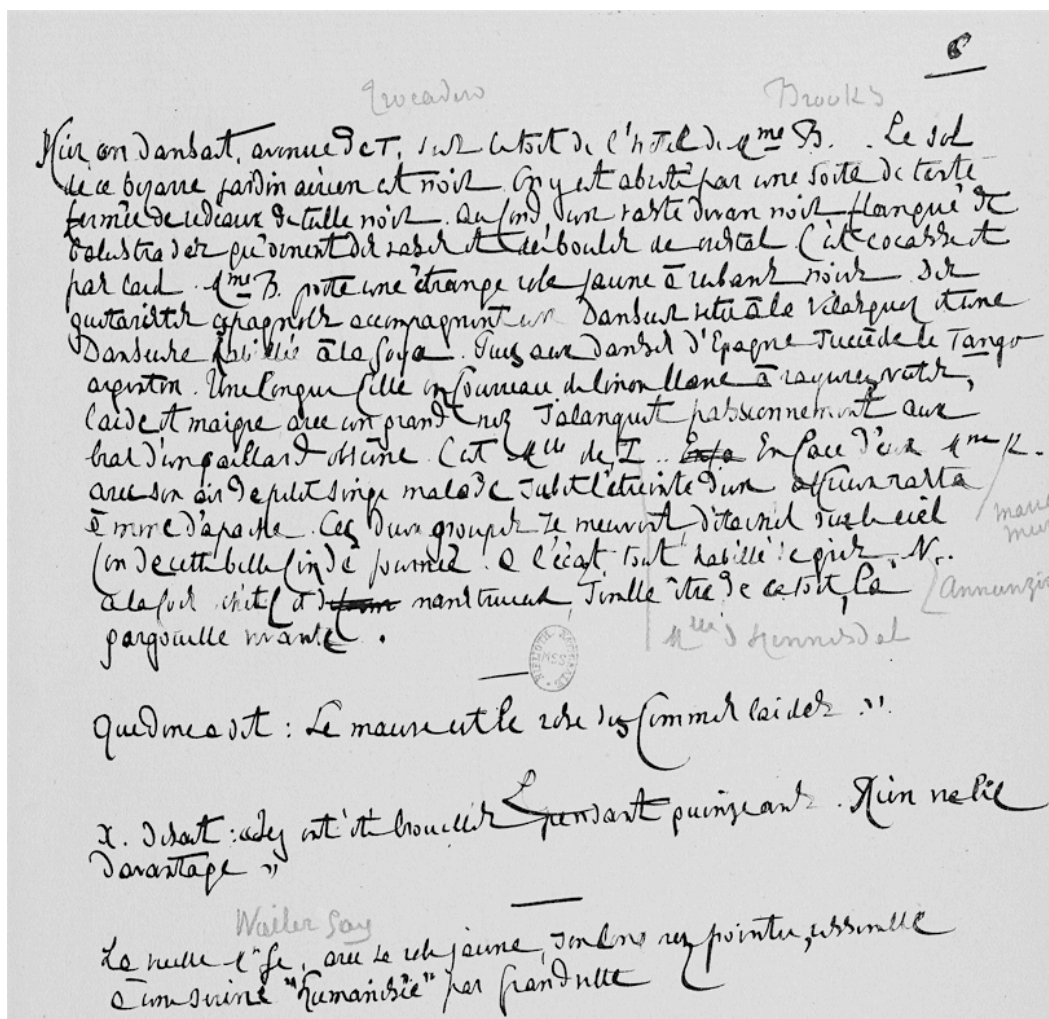 6
Trocadero Brooks
Hier on dansait, avenue de T, sur le toit de l'hôtel de Mme B. . Le sol
de ce bizarre jardin aérien est noir. On y est abrité par une sorte de tente
fermée de rideaux de tulle noir. Au fond d'un vaste divan noir flanqué de
balustrades qu'ornent des vases et des boules de cristal. C'est cocasse et
pas laid. Mme B. porte une étrange robe jaune à rubans noirs. Des
guitaristes espagnols accompagnent un danseur vêtu à la Velasquez et une
danseuse habillée à la Goya. Puis aux danses d'Espagne succède le Tango
argentin. Une longue fille en fourreau de linon blanc à rayures vertes,
laide et maigre avec un grand nez s'alanguit passionnément aux
bras d'un gaillard obscène. C'est Mlle de I.. En face d'eux Mme R.
avec son air de petit singe malade subit l'étreinte d'un affreux rasta
à mine d'apache. Ces deux groupes se meuvent sur le ciel
fin de cette belle fin de journée. A l'écart tout habillé de gris N..
à la fois chétif et monstrueux, semble être de ce toit, la
Annunzio
gargouille vivante.
Mlle d'Hennisdal
Quedonc a dit : Le mauve est le rose des femmes laides ".
X. disait : elles ont été brouillées pendant quinze ans. Rien ne lie
davantage "
Weiler Gay
La vieille Mme Ge, avec sa robe jaune, son long nez pointu, ressemble
à une serine "humanisée" par Grandville